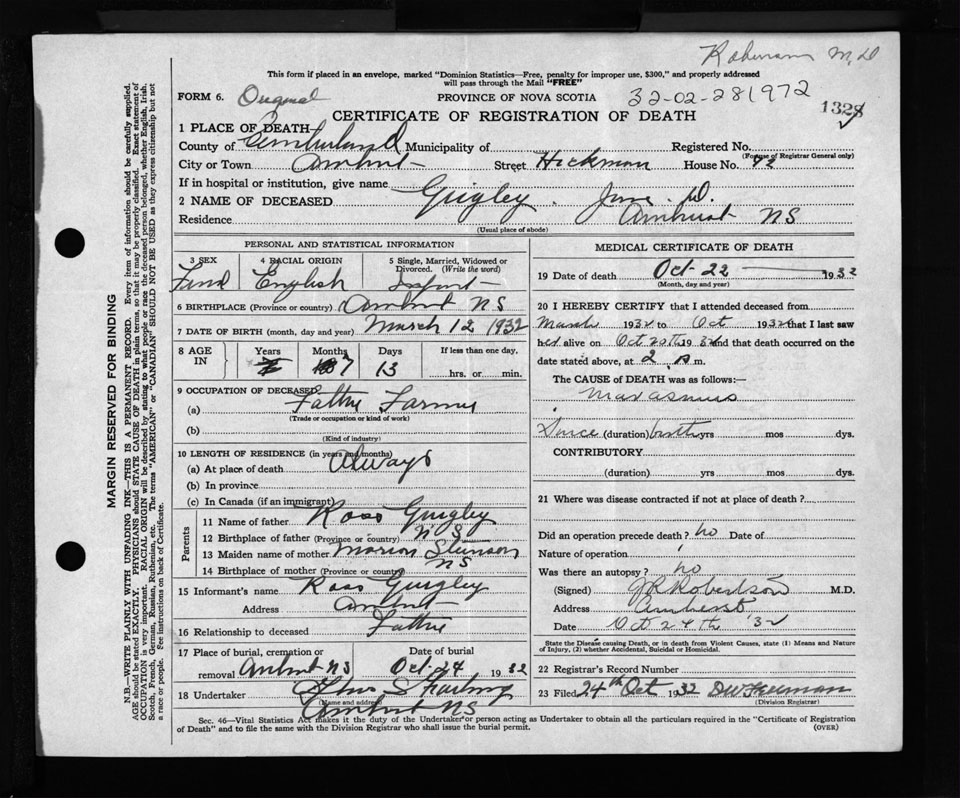 M.D
This form if placed in an envelope, marked "Dominion Statistics—Free, penalty for improper use, $300," and properly addressed
will pass through the Mail "FREE"
FORM 6. Original PROVINCE OF NOVA SCOTIA 32-02-281972
CERTIFICATE OF REGISTRATION OF DEATH 1324
1 PLACE OF DEATH
County of Cumberland Municipality of Registered No.
(For use of Registrar General only)
City or Town Amherst Street Hickman House No.
If in hospital or institution, give name
2 NAME OF DECEASED Quigley. D.
Residence Amherst NS
(Usual place of abode)
PERSONAL AND STATISTICAL INFORMATION
3 SEX 4 RACIAL ORIGIN 5 Single, Married, Widowed or
Divorced. (Write the word)
English Infant
6 BIRTHPLACE (Province or country) Amherst NS
7 DATE OF BIRTH (month, day and year) March 12 1932
8 AGE IN Years Months Days If less than one day,
7 13 hrs. or min.
9 OCCUPATION OF DECEASED
(a) Father Farmer
(Trade or occupation or kind of work)
(b)
(Kind of industry)
10 LENGTH OF RESIDENCE (in years and months)
(a) At place of death Always
(b) In province
(c) In Canada (if an immigrant)
Parents
11 Name of father Ross Quigley
12 Birthplace of father (Province or country) NS
13 Maiden name of mother Marion
14 Birthplace of mother (Province or country) NS
15 Informant's name Ross Quigley
Address Amherst
16 Relationship to deceased Father
17 Place of burial, cremation or Date of burial
removal Amherst NS Oct-24 1932
18 Undertaker
(Name and address)
Amherst NS
MEDICAL CERTIFICATE OF DEATH
19 Date of death Oct-22 1932
(Month, day and year)
20 I HEREBY CERTIFY that I attended deceased from
March 1932 to Oct 1932 that I last saw
her alive on Oct 20th 1932 and that death occurred on the
date stated above, at 2 m.
The CAUSE of DEATH was as follows:—
Marasmus
Since (duration) birth yrs mos dys.
CONTRIBUTORY
(duration) yrs mos dys.
21 Where was disease contracted if not at place of death?
Did an operation precede death? no Date of
Nature of operation
Was there an autopsy? no
(Signed) Robertson M.D.
Address Amherst
Date Oct 24th '32
State the Disease causing Death, or in death from Violent Causes, state (1) Means and Nature
of Injury, (2) whether Accidental, Suicidal or Homicidal.
22 Registrar's Record Number
23 Filed 24th Oct 1932
(Division Registrar)
Sec. 46—Vital Statistics Act makes it the duty of the Undertaker or person acting as Undertaker to obtain all the particulars required in the "Certificate of Registration
of Death" and to file the same with the Division Registrar who shall issue the burial permit. (OVER)
MARGIN RESERVED FOR BINDING
N.B.—WRITE PLAINLY WITH UNFADING INK—THIS IS A PERMANENT RECORD. Every item of information should be carefully supplied.
AGE should be stated EXACTLY. PHYSICIANS should STATE CAUSE OF DEATH in plain terms, so that it may be properly classified. Exact statement of
OCCUPATION is very important. RACIAL ORIGIN will be described by stating to what people or race the deceased person belonged, whether English, Irish,
Scotch, French, German, Russian, Ruthenian, etc. The terms "AMERICAN" or "CANADIAN" SHOULD NOT BE USED as they express citizenship but not
a race or people. See instructions on back of Certificate.